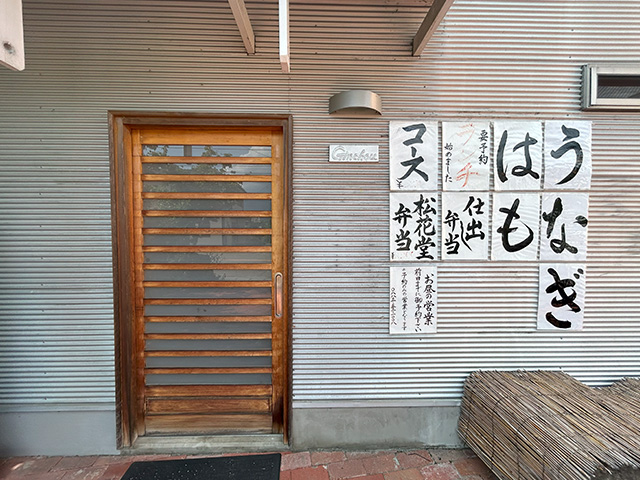 うなぎ
はも
要予約
ランチ
始めました
仕出し
弁当
コース
松花堂
弁当
お昼の営業
前日までに御予約下さい